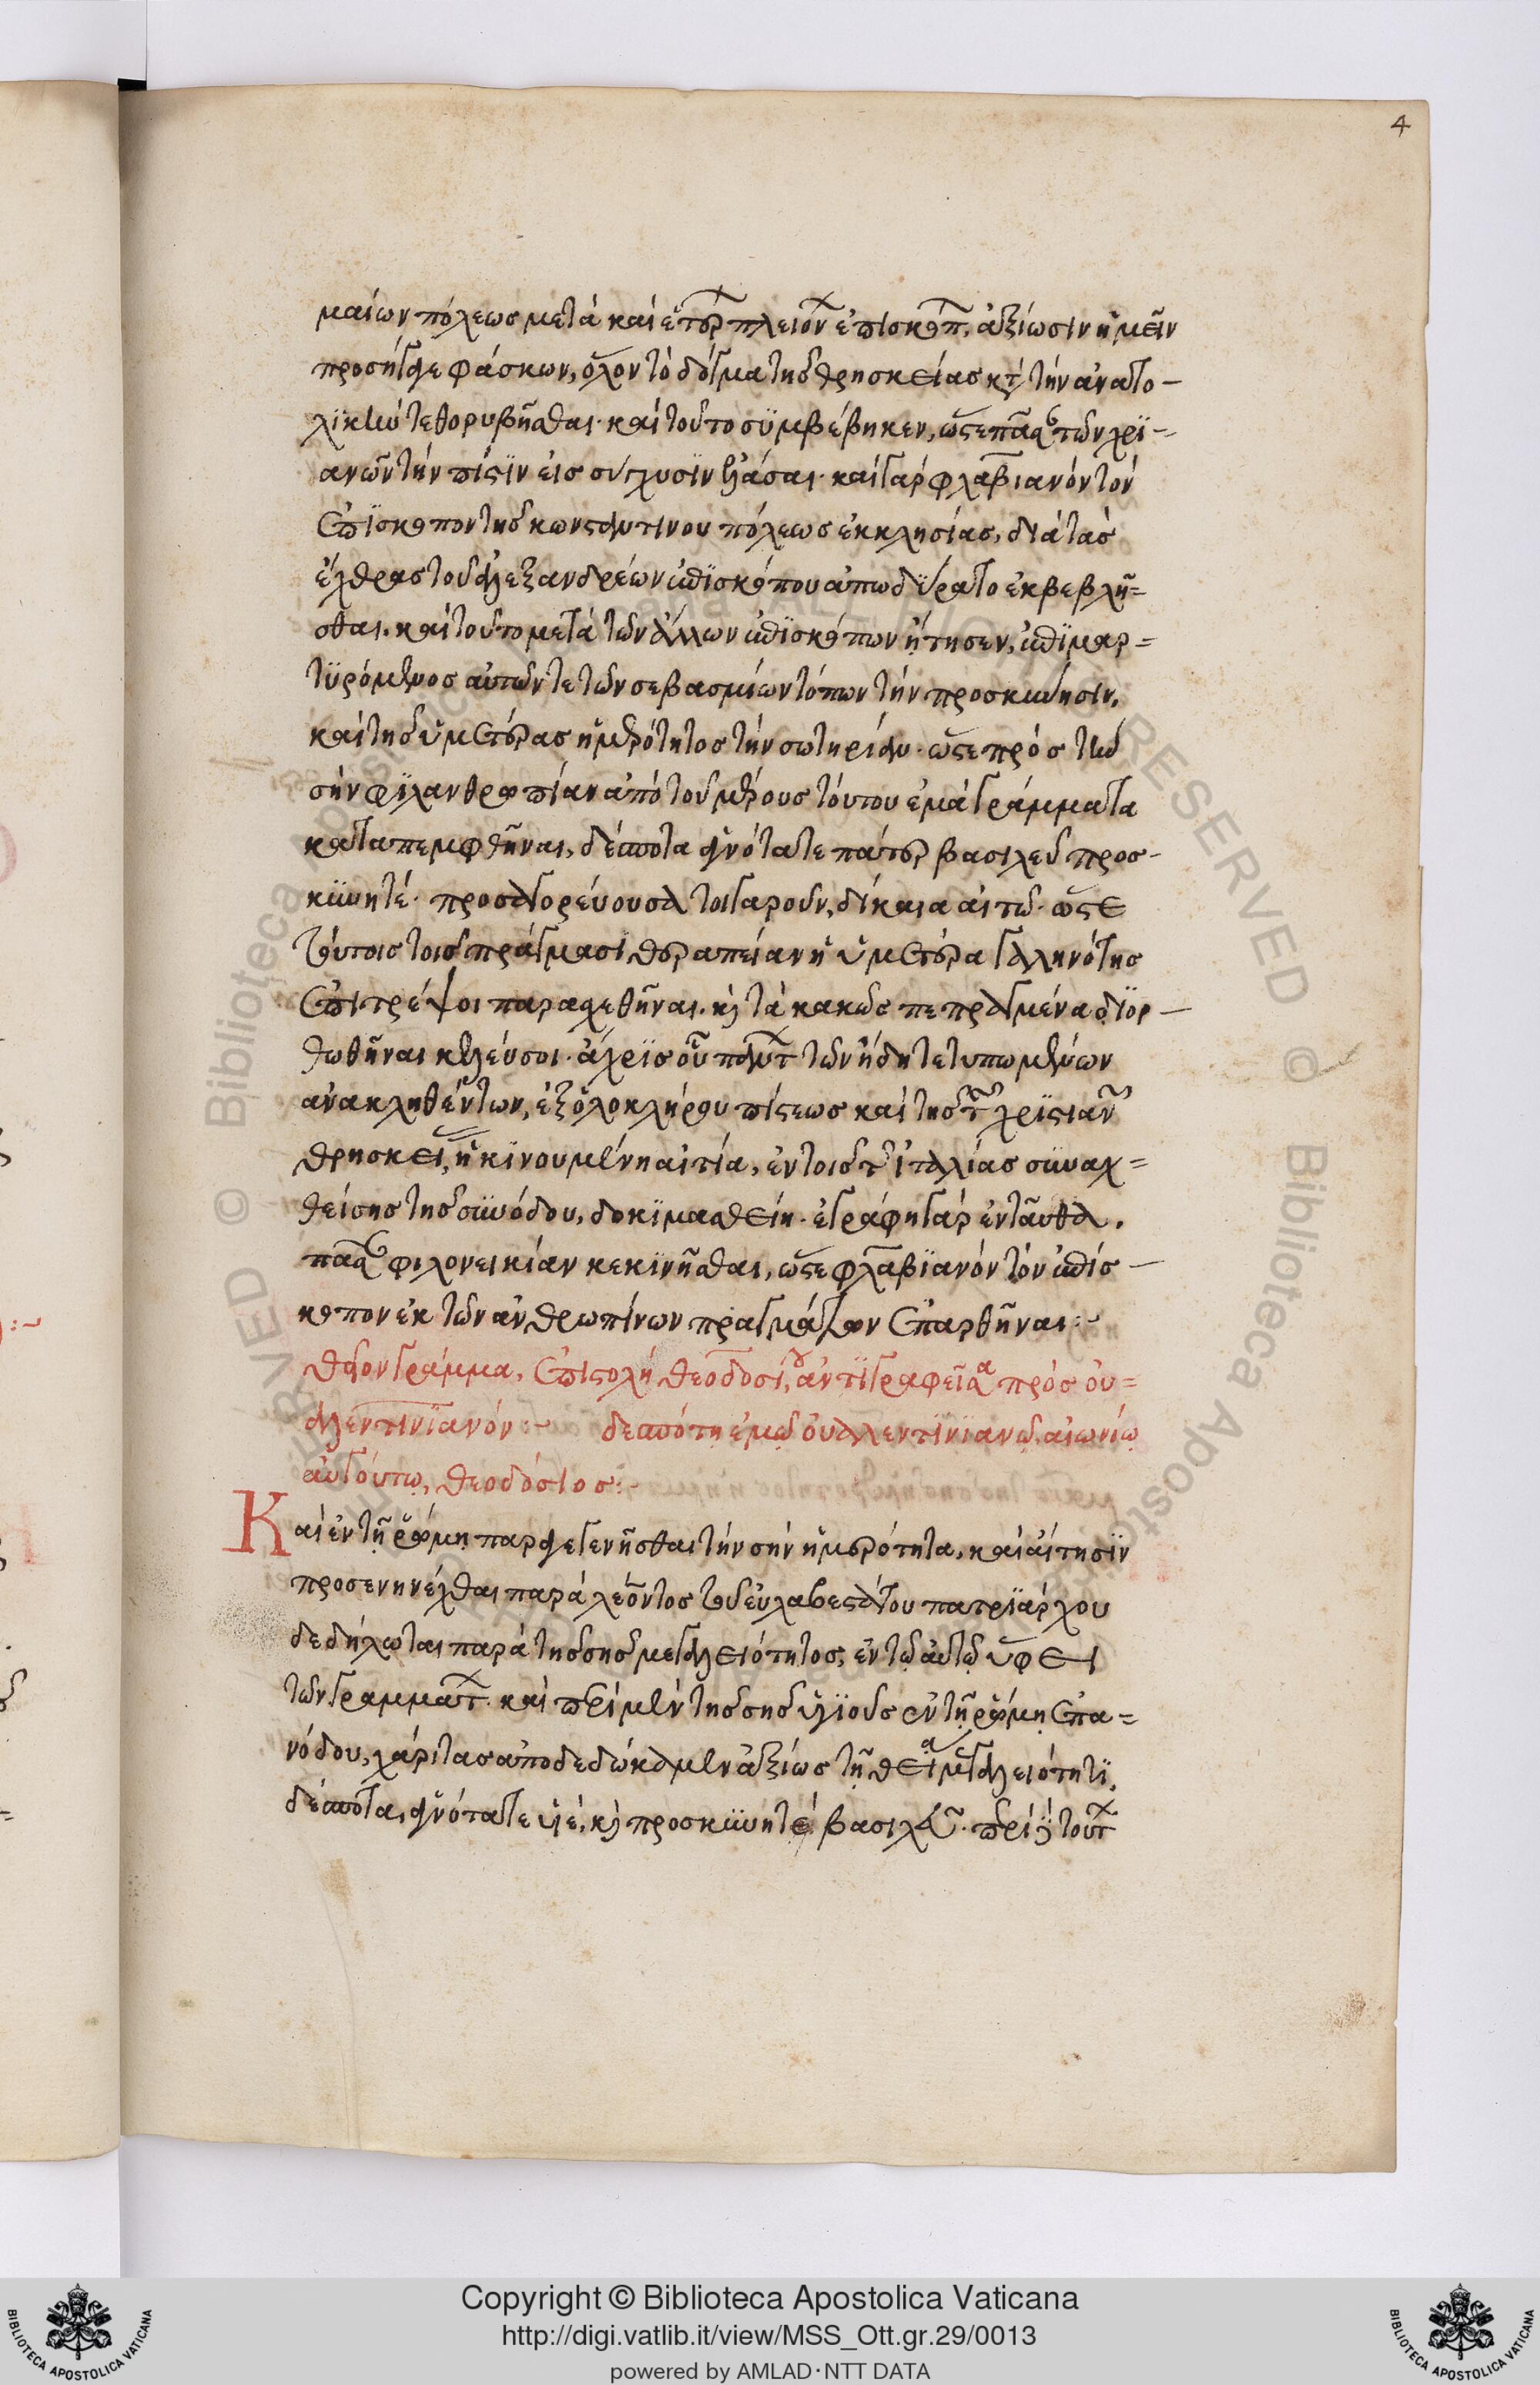 4
μαίων πόλεως μετὰ καὶ ἑτέρ πλειόν ἐπισκόπ. ἀξίωσιν ἡμῖν
προσήγαγε φάσκων, ὅλον τὸ δόγμα τῆς θρησκείας κτ τὴν ἀνατο-
λϊκὴν τεθορυβῆσθαι· καὶ τοῦτο συμβέβηκεν, ὥστε πᾶσ τῶν χρϊ-
ανῶν τὴν πίστϊν εἰς σύγχυσϊν ἐλάσαι· καὶ γὰρ φλαβιανὸν τὸν
ἐπϊσκοπον τῆς κωνσταντινου πόλεως ἐκκλησίας, διὰ τὰς
ἔχθρας τοῦ ἀλεξανδρέων ἐπϊσκόπου ἀπωδύρατο ἐκβεβλῆ=
σθαι. καὶ τοῦτο μετὰ τῶν ἄλλων ἐπϊσκόπων ᾔτησεν, ἐπϊμαρ=
τϋρόμενος αὐτῶν τε τῶν σεβασμίων τόπων τὴν προσκύνησιν,
καὶ τῆς ὑμετέρας ἡμερότητος τὴν σωτηρίαν· ὥστε πρὸς τὴν
σὴν φϊλανθρωπίαν ἀπὸ τοῦ μέρους τούτου ἐμὰ γράμματα
καταπεμφθῆναι, δέσποτα ἁγνότατε πάτερ βασιλεῦ προσ-
κϋνητέ· προσαγορεύουσα τοιγαροῦν, δίκαια αἰτῶ· ὥστε
τούτοις τοῖς πράγμασϊ θεραπείαν ἡ ὑμετέρα γαληνότης
ἐπιτρέψοι παρασχεθῆναι. κὶ τὰ κακῶς πεπραγμένα δϊορ-
θωθῆναι κελεύσοι· ἄχρϊς οὗ πάντ τῶν ἤδη τετυπωμένων
ἀνακληθέντων, ἐξ ὁλοκλήρου πίστεως καὶ τῆς τ χρϊστιαν
θρησκεί, ἡ κϊνουμένη αἰτία, ἐν τοῖς τ ἰταλίας συναχ=
θείσης τῆς συνόδου, δοκϊμασθείη· ἐγράφη γὰρ ἐνταῦθα.
πᾶσ φιλονεικίαν κεκϊνῆσθαι, ὥστε φλαβϊανὸν τὸν ἐπίσ-
κοπον ἐκ τῶν ἀνθρωπίνων πραγμάτων ἐπαρθῆναι:~
θεῖον γράμμα, ἐπιστολὴ θεοδοσί, ἀντϊγραφεῖσα πρὸς οὐ=
αλεντινϊανόν:~ δεσπότῃ ἐμῷ οὐαλεντϊνϊανῷ, αἰωνίῳ
αὐγούστῳ, θεοδόσιος:~
Καὶ ἐν τῇ ῥώμῃ παραγεγενῆσθαι τὴν σὴν ἡμερότητα, καὶ αἴτησϊν
προσενηνέχθαι παρὰ λέοντος τοῦ εὐλαβεστάτου πατρϊάρχου
δεδήλωται παρὰ τῆς σῆς μεγαλειότητος, ἐν τῷ αὐτῷ ὕφει
τῶν γραμμάτ. καὶ περὶ μὲν τῆς σῆς ὑγϊοῦς ἐν τῇ ῥώμῃ ἐπα=
νόδου, χάριτας ἀποδεδώκαμεν ἀξίως τῇ θείᾳ μεγαλειότητϊ,
δέσποτα, ἁγνότατε υἱέ, κὶ προσκϋνητὲ βασιλεῦ. περὶ δὲ τούτ
Copyright © Biblioteca Apostolica Vaticana
http://digi.vatlib.it/view/MSS_Ott.gr.29/0013
powered by AMLAD·NTT DATA